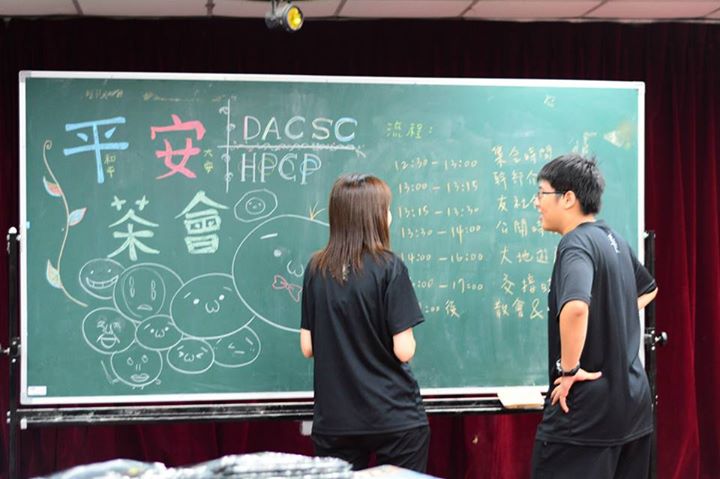 平和平 安大安
茶會
DACSC
HPCP
流程:
12:30 - 13:00 集合時間
13:00 - 13:15 幹部介
13:15 - 13:30 友社
13:30 - 14:00 公關時
14:00 - 16:00 大地遊
:00 - 17:00 交接
:00 後 散會 &